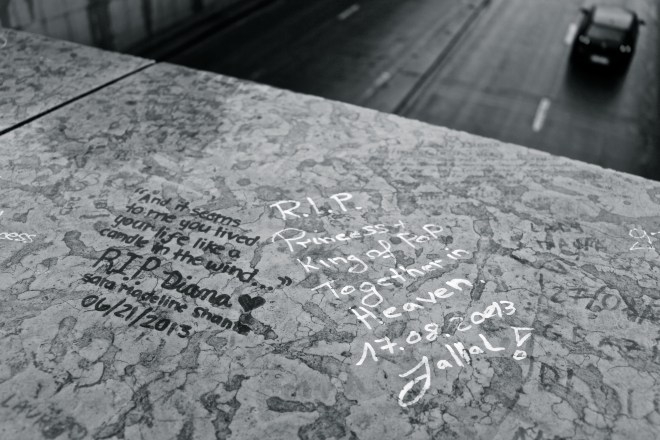 "And it seems
to me you lived
your life like a
candle in the wind..."
RIP Diana ♥
sara madeline shantz
06/21/2013
R.I.P.
Princess +
King of PoP
Together in
Heaven
17.08.2013
Jallal !